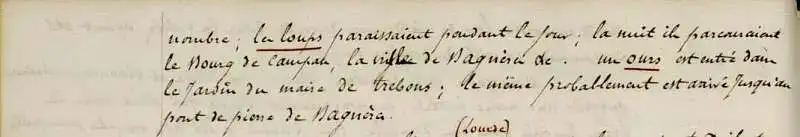 nombre; les loups paraissaient pendant le jour; la nuit ils parcouraient
le Bourg de Campan, la ville de Bagnères de . un ours est entré dans
le jardin du maire de trebons; le même probablement est arrivé jusqu'au
pont de pierre de Bagnères.
(Louise)